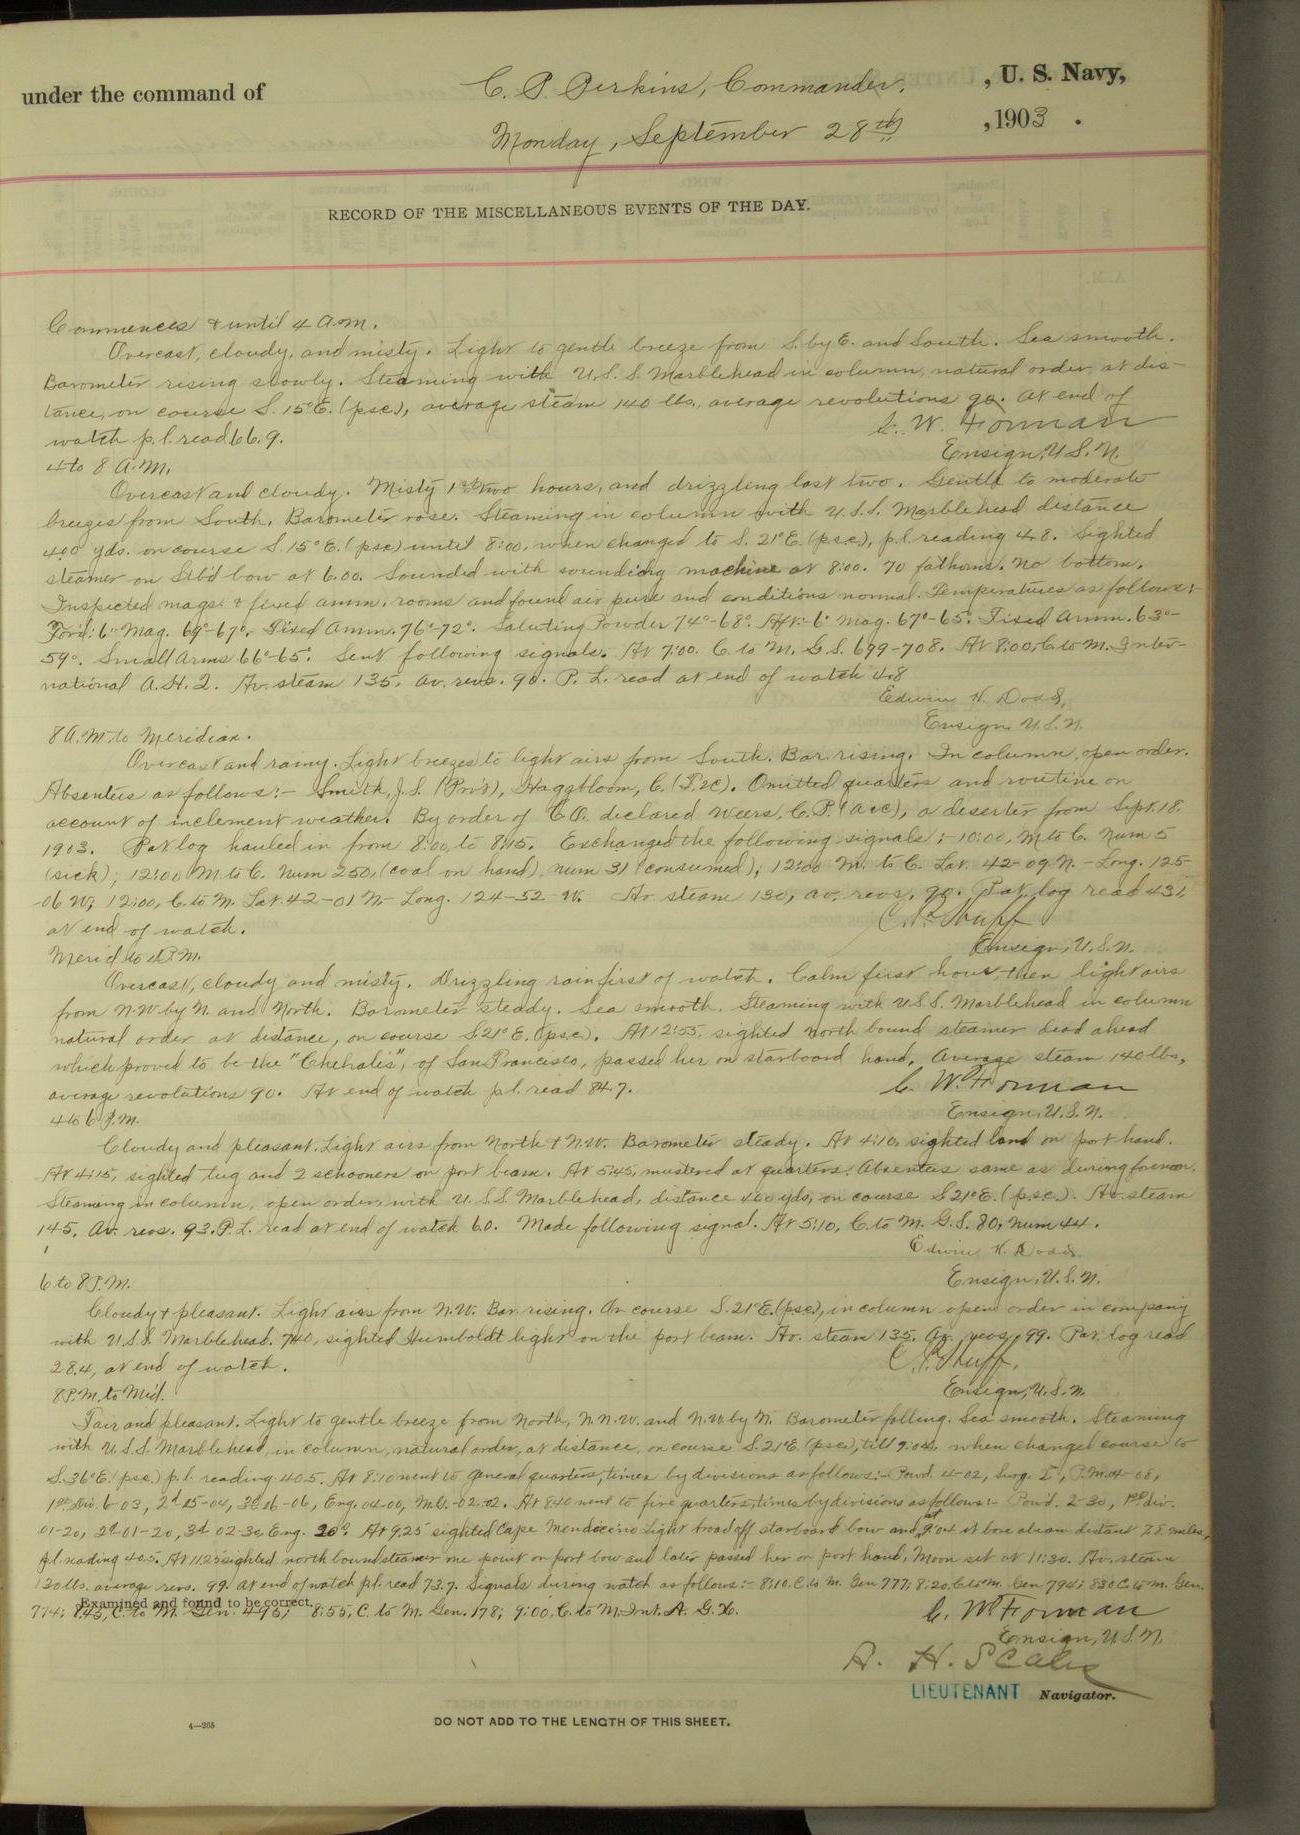 under the command of C. P. Perkins, Commander, , U. S. Navy,
Monday, September 28th , 1903 .
RECORD OF THE MISCELLANEOUS EVENTS OF THE DAY.
Commences & until 4 A.M.
Overcast, cloudy, and misty. Light to gentle breeze from S. by E. and South. Sea smooth.
Barometer rising slowly. Steaming with U.S.S. Marblehead in column, natural order, at dis-
tance, on course S. 15°E. (psc), average steam 140 lbs, average revolutions 90. At end of
watch p.l. read 66.9. C. W. Forman
4 to 8 A.M. Ensign, U.S.N.
Overcast and cloudy. Misty 1st two hours, and drizzling last two. Gentle to moderate
breezes from South. Barometer rose. Steaming in column with U.S.S. Marblehead distance
400 yds. on course S. 15°E. (psc) until 8:00, when changed to S. 21°E (psc), p.l. reading 4.8. Sighted
steamer on Stb'd bow at 6.00. Sounded with sounding machine at 8:00. 70 fathoms. No bottom.
Inspected mags. & fixed amm. rooms and found air pure and conditions normal. Temperatures as follows:-
For'd: 6" Mag. 69°-67°. Fixed Amm. 76°-72°. Saluting Powder 74°-68°. Aft:- 6" Mag. 67°-65°. Fixed Amm. 63°-
59°. Small Arms 66°-65°. Sent following signals. At 7:00. C. to M. G.S. 699-708. At 8:00, C. to M. Inter-
national A.H.Q. Av. steam 135. Av. revs. 90. P. L. read at end of watch 4.8
Edwin H. Dodd,
Ensign U.S.N.
8 A.M. to Meridian.
Overcast and rainy. Light breezes to light airs from South. Bar. rising. In column, open order.
Absentees as follows:- Smith, J.S. (Priv), Haggbloom, C. Omitted quarters and routine on
account of inclement weather. By order of C.O. declared Weers, C.P. a deserter from Sept. 18
1903. Pat. log hauled in from 8:00, to 8:15. Exchanged the following signals:- 10:00, M. to C. Num 5
(sick); 12:00 M. to C. Num 250, (coal on hand), num 31 (consumed); 12:00 M. to C. Lat. 42-09 N.- Long. 125-
06 W; 12:00, C. to M. Lat. 42-01 N- Long. 124-52 W. Av. steam 130, av. revs. 90. Pat. log read 43.1,
at end of watch. C. Shupf
Merid to 4 P.M. Ensign, U.S.N.
Overcast, cloudy and misty. Drizzling rain first of watch. Calm first hour then light airs
from N.W by N. and North. Barometer steady. Sea smooth. Steaming with U.S.S. Marblehead in column
natural order at distance, on course S.21°E. (psc). At 12:55, sighted north bound steamer dead ahead
which proved to be the "Chehalis", of San Francisco, passed her on starboard hand. Average steam 140 lbs,
average revolutions 90. At end of watch p.l. read 84.7. C. W. Forman
4 to 6 P.M. Ensign, U.S.N.
Cloudy and pleasant. Light airs from North & N.W. Barometer steady. At 4:10, sighted land on port hand.
At 4:15, sighted tug and 2 schooners on port beam. At 5:45, mustered at quarters. Absentees same as during forenoon.
Steaming in column, open order, with U.S.S. Marblehead, distance 400 yds, on course S 21°E. (psc). Av. steam
145. Av. revs. 93. P.L. read at end of watch 6.0. Made following signal. At 5:10, C. to M. G.S. 80, num 44.
Edwin H. Dodd,
6 to 8 P.M. Ensign, U.S.N.
Cloudy & pleasant. Light airs from N.W. Bar. rising. On course S.21°E. (psc), in column open order in company
with U.S.S. Marblehead. 7:40, sighted Humboldt light on the port beam. Av. steam 135. Av. revs. 99. Pat. log read
28.4, at end of watch. C. Shupf.
8 P.M. to Mid. Ensign, U.S.N.
Fair and pleasant. Light to gentle breeze from North, N.N.W. and N.W. by N. Barometer falling. Sea smooth. Steaming
with U.S.S. Marblehead, in column, natural order, at distance, on course S.21°E (psc), till 9:04, when changed course to
S.36°E. (psc) p.l. reading 40.5. At 8:10 went to general quarters, times by divisions as follows:- Powd. 4-02, Surg. P.M. 4-08,
1st Div. 6-03, 2d 15-04, 3d 16-06, Eng. 04-00, At 8:40 went to fire quarters, times by divisions as follows:- Powd. 2-30, 1st div.
01-20, 2d 01-20, 3d 02-30, Eng. At 9:25 sighted Cape Mendocino light broad off starboard bow and at 9:04 it bore abeam distant 7.8 miles,
p.l. reading 40.5. At 11:25 sighted north bound steamer one point on port bow and later passed her on port hand. Moon set at 11:30. Av. steam
130 lbs. average revs. 99. At end of watch p.l. read 73.7. Signals during watch as follows:- 8:10, C. to M. Gen 777; 8:20, C. to M. Gen 794; 8:30 C. to M. Gen.
774; 8:45, C. to M. Gen. 495; 8:55, C. to M. Gen. 178; 9:00, C. to M. Int. A. G. X. C. W. Forman
Examined and found to be correct.
Ensign, U.S.N.
A. H. Scales
LIEUTENANT Navigator.
4—265 DO NOT ADD TO THE LENGTH OF THIS SHEET.